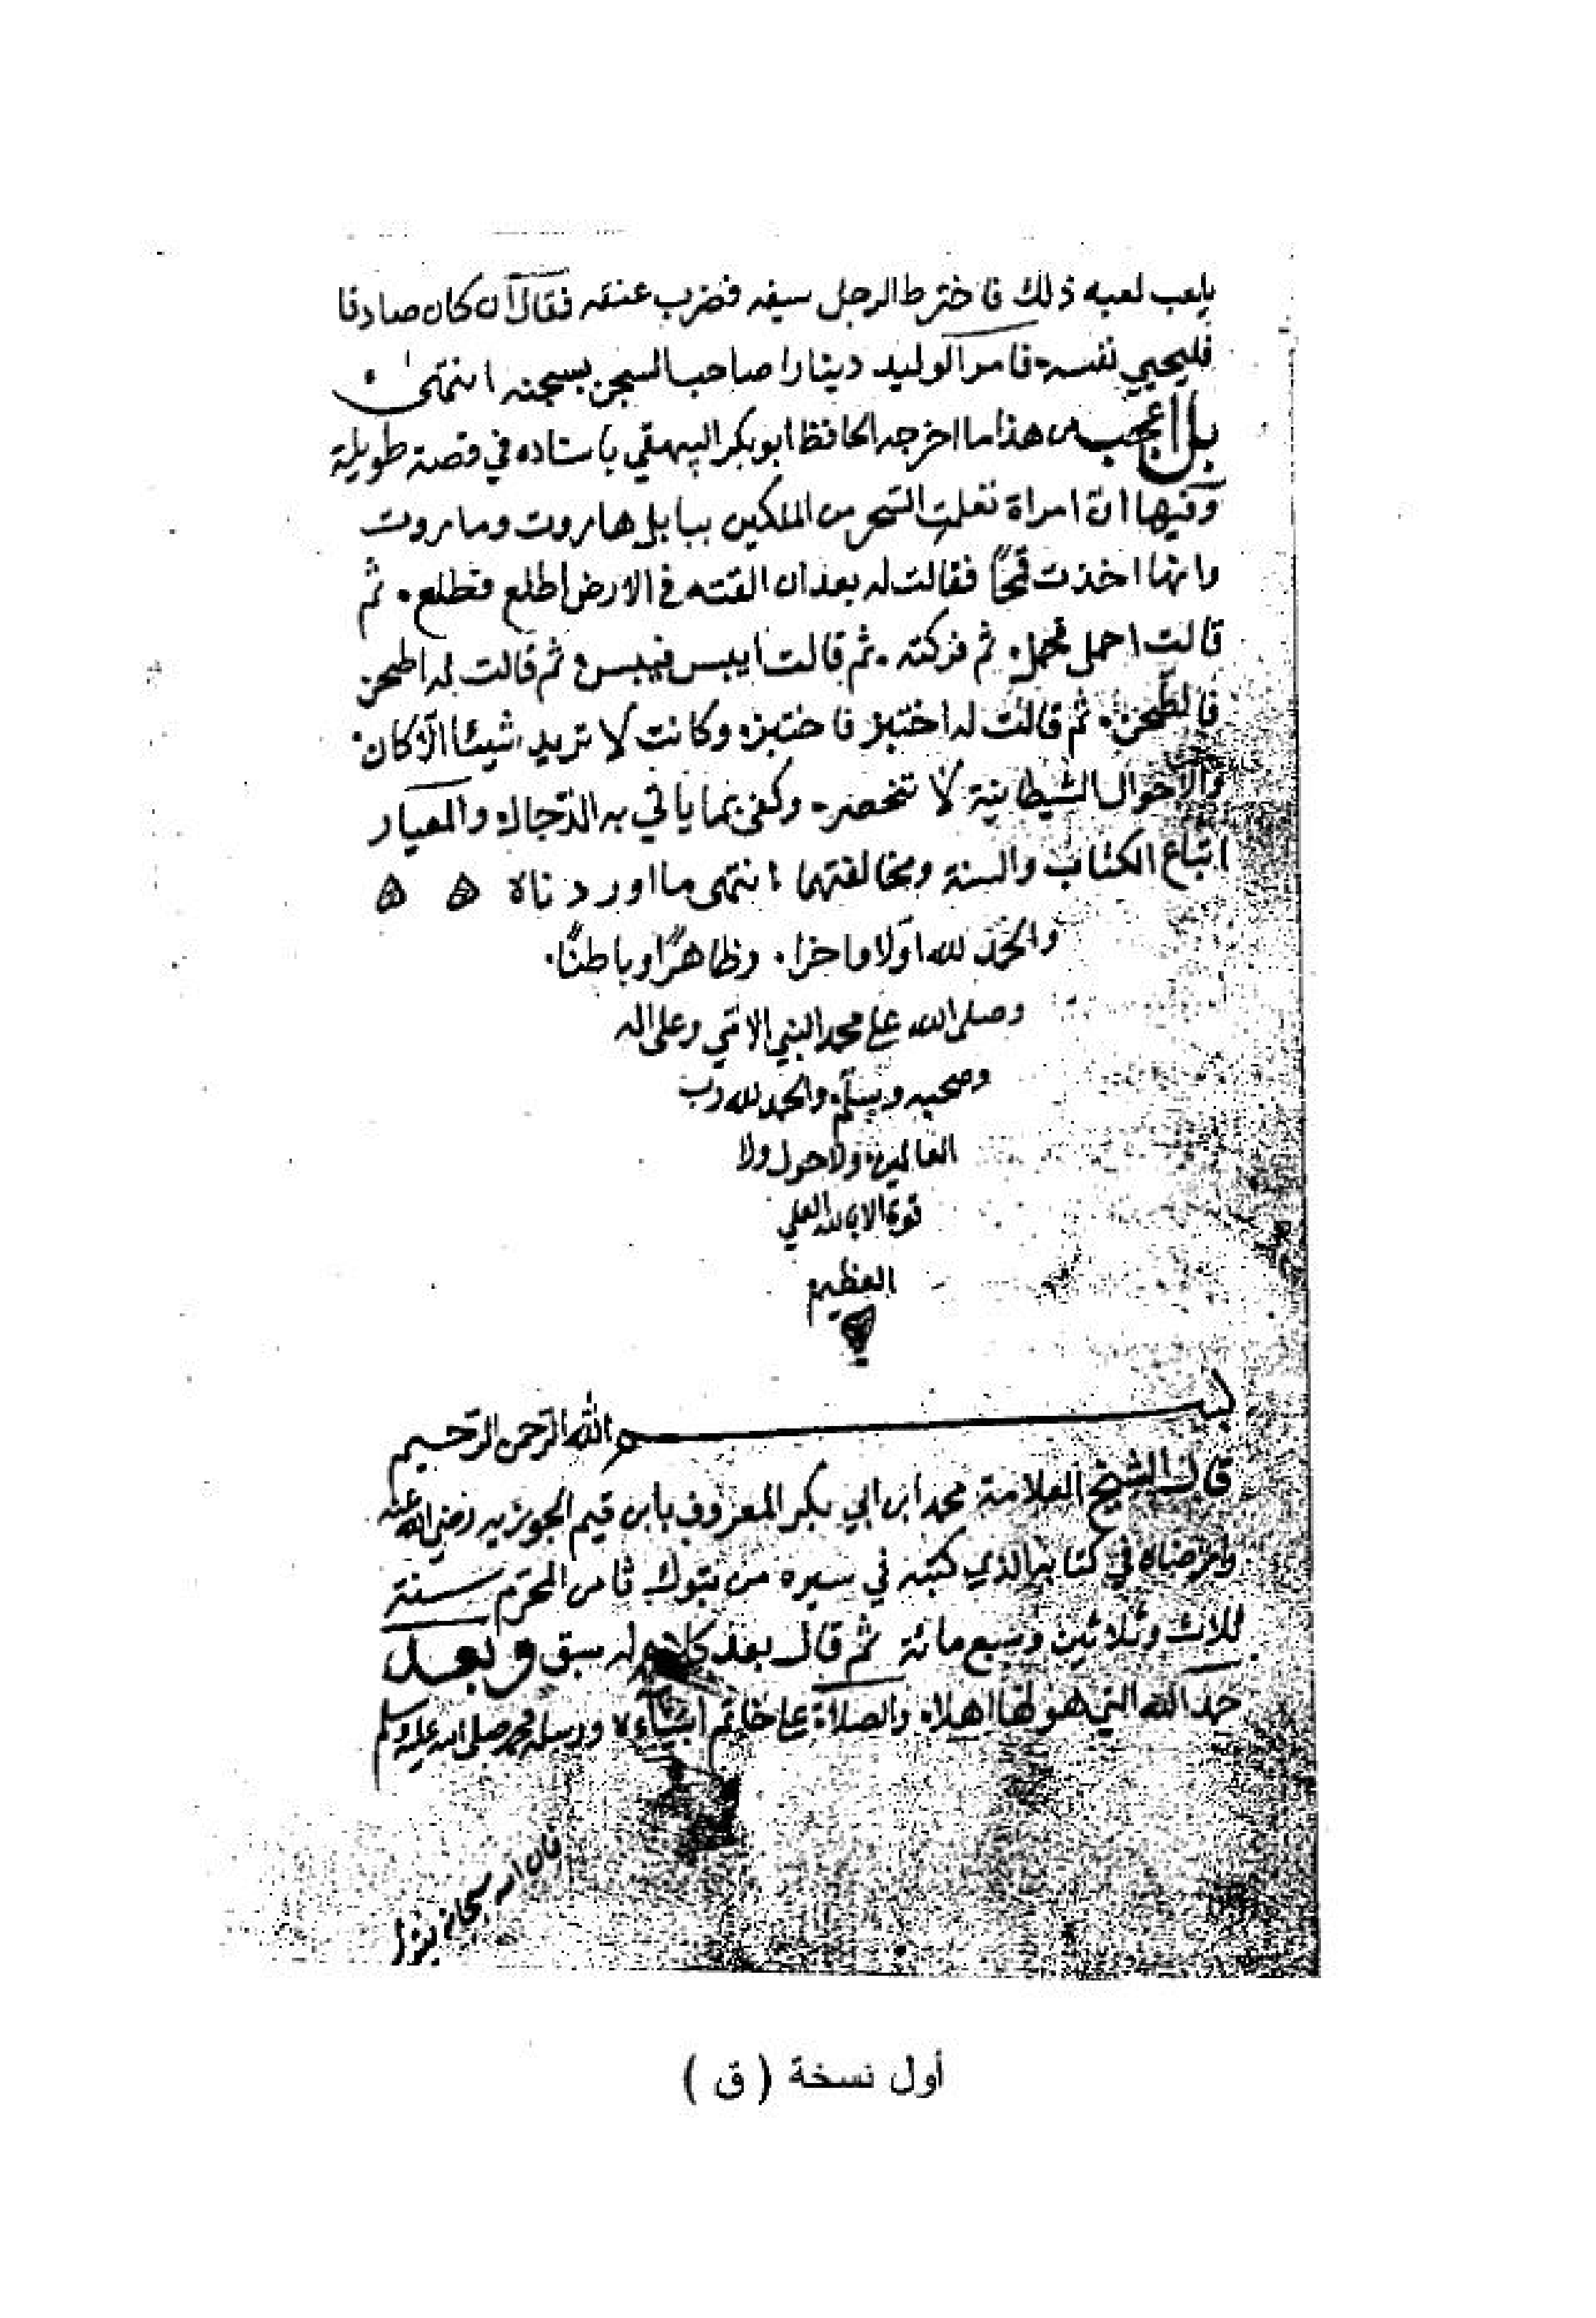 يلعب لعبه ذلك فاخترط الرجل سيفه فضرب عنقه فقال ان كان صادقا
فليحيي نفسه، فامر الوليد دينارا صاحب السجن بسجنه انتهى
بل اعجب من هذا ما اخرجه الحافظ ابو بكر البيهقي باسناده في قصة طويلة
وفيها ان امراة تعلمت السحر من الملكين ببابل هاروت وماروت
وانها اخذت قمحًا فقالت له بعد ان القته في الارض اطلع فطلع. ثم
قالت احمل فحمل. ثم فركته. ثم قالت ايبس فيبس ثم قالت له اطحن
فاطحن. ثم قالت له اختبز فاختبز. وكانت لا تريد شيئا الا كان.
والاحوال الشيطانية لا تنحصر. وكفى بما ياتي به الدجال، والمعيار
اتباع الكتاب والسنة ومخالفتهما انتهى ما اوردناه ه ه
والحمد لله اولا واخرا. وظاهرًا وباطنًا.
وصلى الله على محمد النبي الامي وعلى اله
وصحبه وسلم، والحمد لله رب
العالمين، ولا حول ولا
قوة الا بالله العلي
العظيم
بسم الله الرحمن الرحيم
قال الشيخ العلامة محمد ابن ابي بكر المعروف بابن قيم الجوزيه رضي الله عنه
وارضاه في كتابه الذي كتبه في سيره من تبوك ثامن المحرم سنة
ثلاث وثلاثين وسبع مائة ثم قال بعد كلام له سبق وبعد
حمد الله التي هو لها اهلا. والصلاة على خاتم انبياءه ورسله محمد صلى الله عليه وسلم
فان الله سبحانه يقول
أول نسخة ( ق )